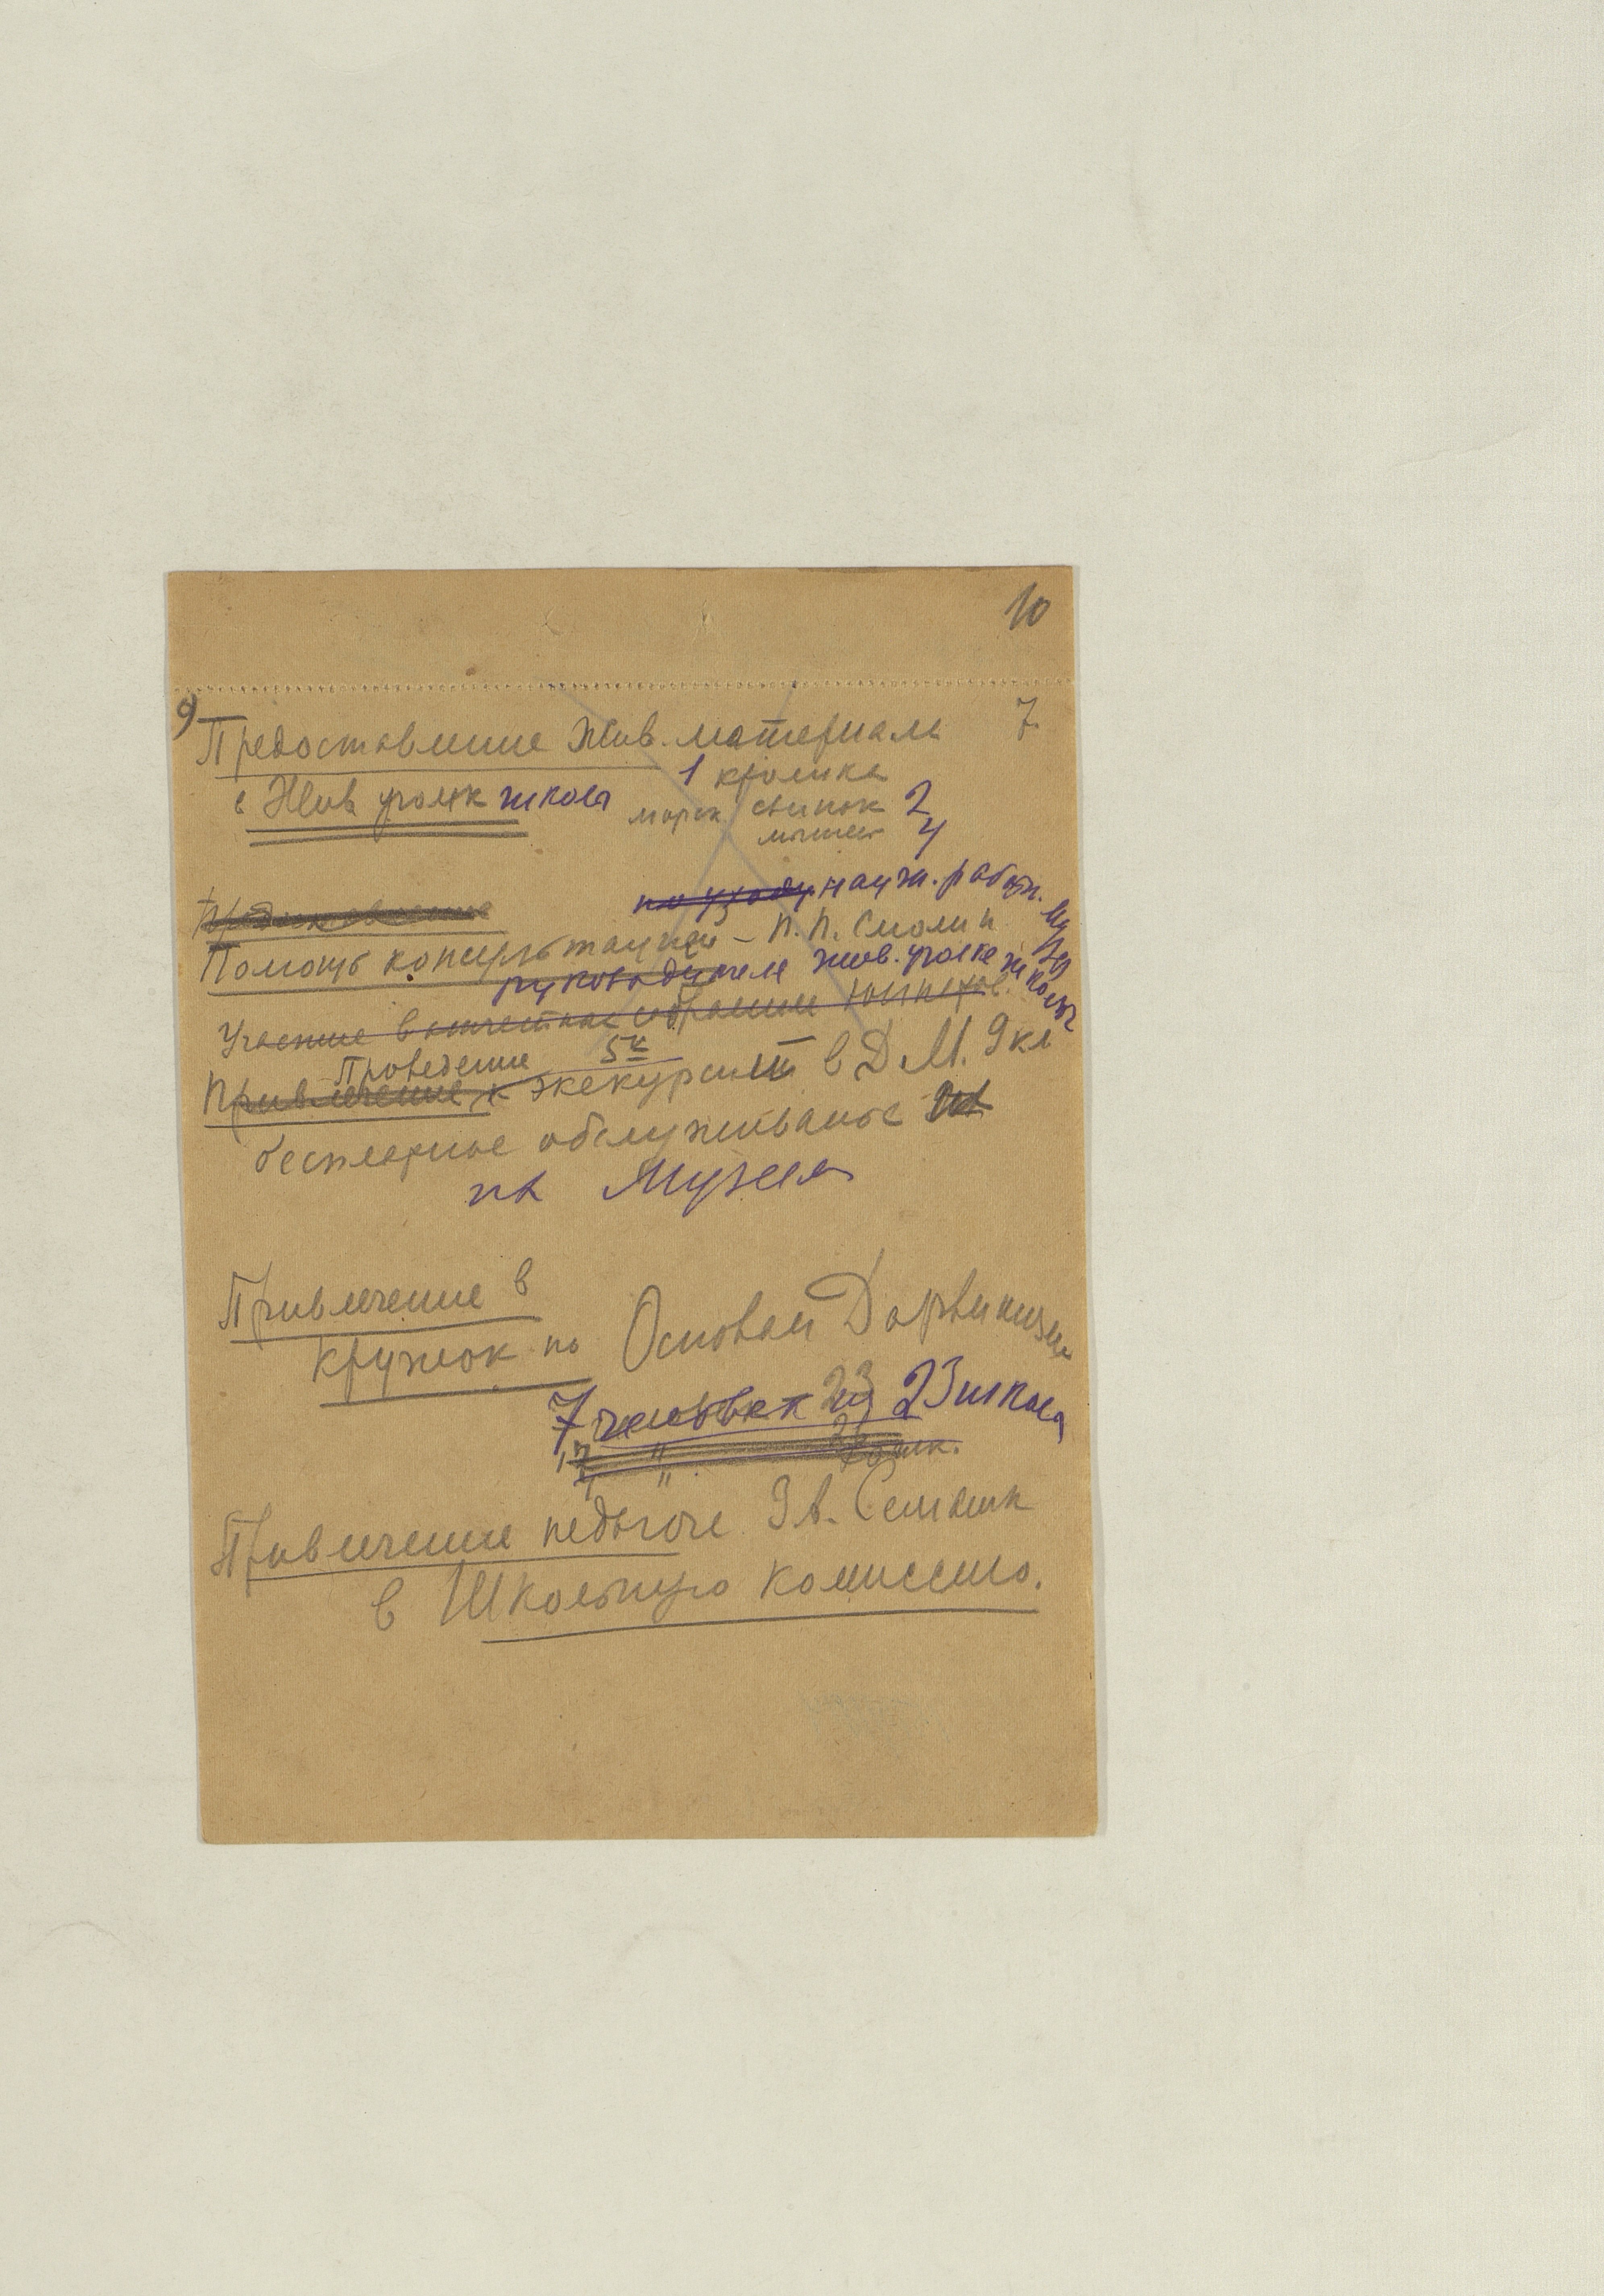 10
9) Предоставление Жив. материала 7.
1 кролика
в Жив уголк школы морск. свинок 2
мышей 4
по уходу научн. работн. Музея
Предоставление
Помощь консультацией – П. П. Смолин
руководителя жив. уголка школы
Участие в отчетном собрании юннатов.
Проведение 5и
Привлечение к экскурсий в Д. М. 9 кл
бесплатное обслуживание
на Музея
Привлечение в
кружок по Основам Дарвинизма
7 человек из 23 школы
17 " 
"
Привлечение педагога Зв. Семашк
в Школьную комиссию.